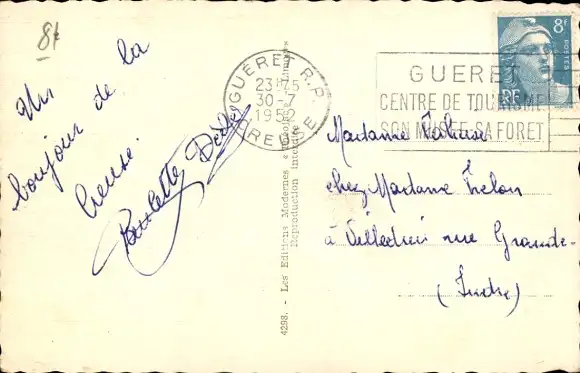 8f
Un
bonjour de la
Creuse.
Paulette
GUÉRET R.P.
23H45
30-7
1952
CREUSE
GUERET
CENTRE DE TOURISME
SON MUSEE SA FORET
8F
POSTES
RF
4298. - Les Editions Modernes
Reproduction interdite
Madame
chez Madame Trelon
à Villedieu rue Grande-
(Indre)